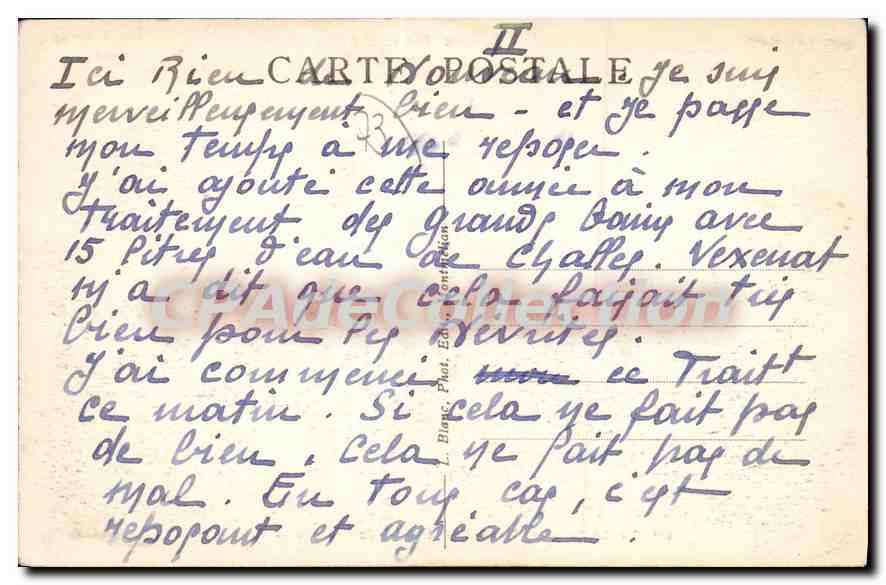 II
CARTE POSTALE
Ici Rien de Nouveau. Je suis
merveilleusement bien - et je passe
73
mon temps à me reposer.
J'ai ajouté cette année à mon
Traitement des grands bains avec
15 litres d'eau de Challes. Vexenat
m'a dit que cela faisait très
CPADeCollection
bien pour les Nevrites.
J'ai commencé ce Traitt
ce matin. Si cela ne fait pas
de bien, cela ne fait pas de
mal. En tous cas, c'est
reposant et agréable.
L. Blanc, Phot. Edit., Montmélian